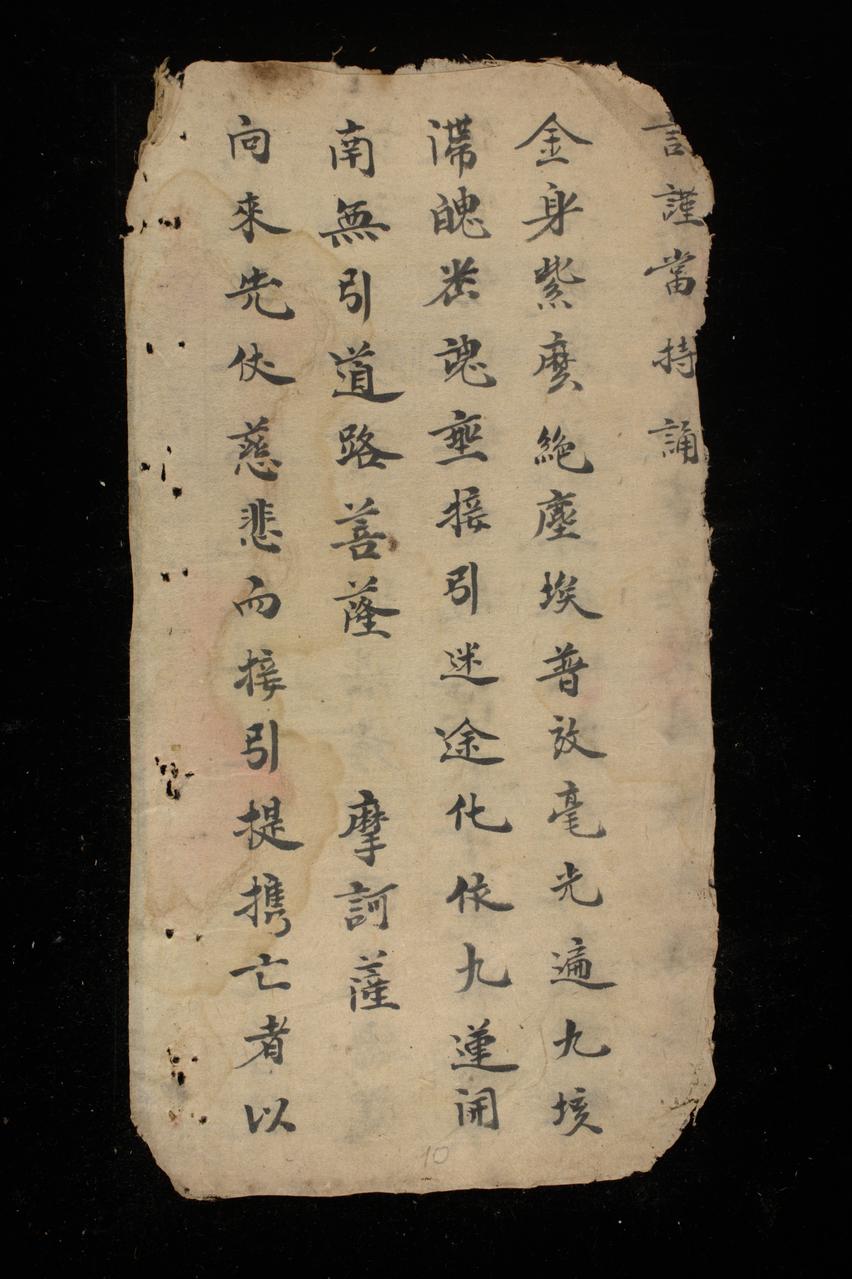 言謹當持誦
金身紫麽絶塵埃普放毫光遍九垓
滯魄黃魂垂接引迷途化依九蓮開
南無引道路菩薩 摩訶薩
向來先伏慈悲而接引提携亡者以
10